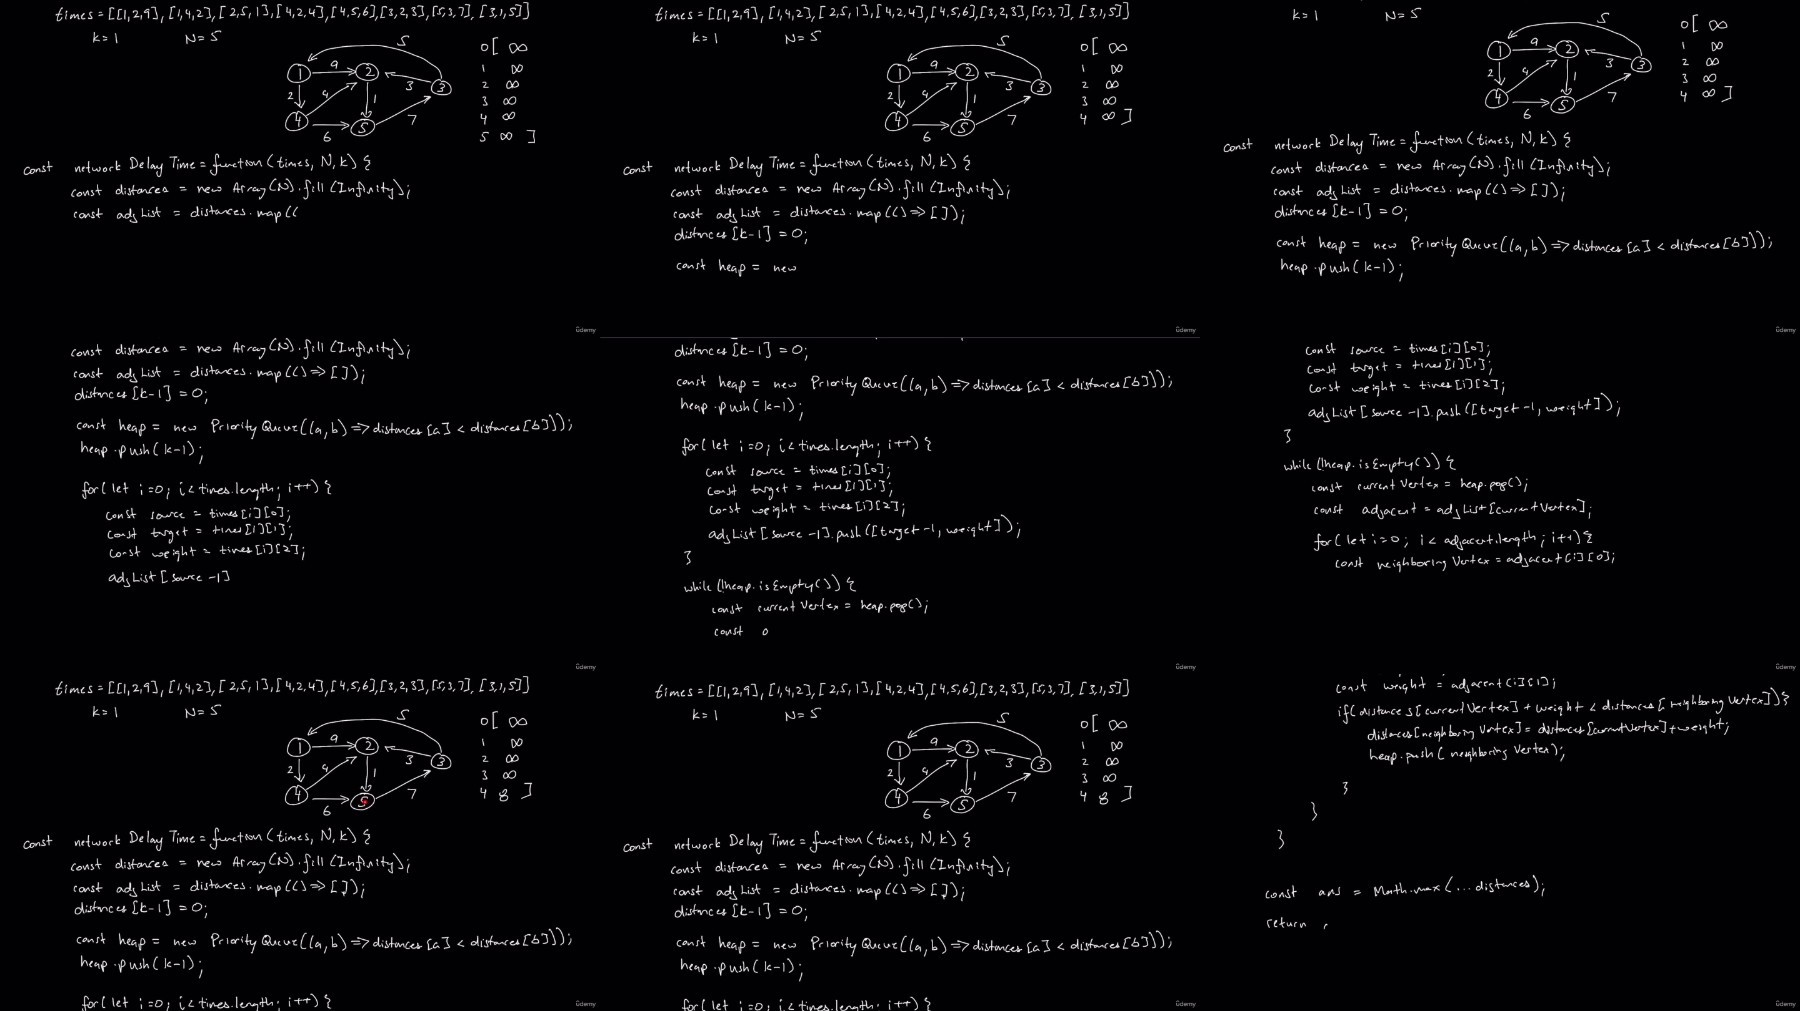 times = [[1,2,9], [1,4,2], [2,5,1], [4,2,4], [4,5,6], [3,2,3], [5,3,7], [3,1,5]]
k=1 N=5
5
1 9 2
2 4 1 3 3
4 6 5 7
0 [ ∞
1 ∞
2 ∞
3 ∞
4 ∞
5 ∞ ]
const networkDelayTime = function(times, N, k) {
const distances = new Array(N).fill(Infinity);
const adjList = distances.map((
ûdemy
times = [[1,2,9], [1,4,2], [2,5,1], [4,2,4], [4,5,6], [3,2,3], [5,3,7], [3,1,5]]
k=1 N=5
5
1 9 2
2 4 1 3 3
4 6 5 7
0 [ ∞
1 ∞
2 ∞
3 ∞
4 ∞ ]
const networkDelayTime = function(times, N, k) {
const distances = new Array(N).fill(Infinity);
const adjList = distances.map(() => []);
distances[k-1] = 0;
const heap = new
ûdemy
k=1 N=5
5
1 9 2
2 4 1 3 3
4 6 5 7
0 [ ∞
1 ∞
2 ∞
3 ∞
4 ∞ ]
const networkDelayTime = function(times, N, k) {
const distances = new Array(N).fill(Infinity);
const adjList = distances.map(() => []);
distances[k-1] = 0;
const heap = new PriorityQueue((a,b) => distances[a] < distances[b]);
heap.push(k-1);
ûdemy
const distances = new Array(N).fill(Infinity);
const adjList = distances.map(() => []);
distances[k-1] = 0;
const heap = new PriorityQueue((a,b) => distances[a] < distances[b]);
heap.push(k-1);
for(let i=0; i<times.length; i++) {
const source = times[i][0];
const target = times[i][1];
const weight = times[i][2];
adjList[source-1]
ûdemy
distances[k-1] = 0;
const heap = new PriorityQueue((a,b) => distances[a] < distances[b]);
heap.push(k-1);
for(let i=0; i<times.length; i++) {
const source = times[i][0];
const target = times[i][1];
const weight = times[i][2];
adjList[source-1].push([target-1, weight]);
}
while(!heap.isEmpty()) {
const currentVertex = heap.pop();
const a
ûdemy
const source = times[i][0];
const target = times[i][1];
const weight = times[i][2];
adjList[source-1].push([target-1, weight]);
}
while(!heap.isEmpty()) {
const currentVertex = heap.pop();
const adjacent = adjList[currentVertex];
for(let i=0; i<adjacent.length; i++) {
const neighboringVertex = adjacent[i][0];
ûdemy
times = [[1,2,9], [1,4,2], [2,5,1], [4,2,4], [4,5,6], [3,2,3], [5,3,7], [3,1,5]]
k=1 N=5
5
1 9 2
2 4 1 3 3
4 6 5 7
0 [ ∞
1 ∞
2 ∞
3 ∞
4 8 ]
const networkDelayTime = function(times, N, k) {
const distances = new Array(N).fill(Infinity);
const adjList = distances.map(() => []);
distances[k-1] = 0;
const heap = new PriorityQueue((a,b) => distances[a] < distances[b]);
heap.push(k-1);
for(let i=0; i<times.length; i++) {
ûdemy
times = [[1,2,9], [1,4,2], [2,5,1], [4,2,4], [4,5,6], [3,2,3], [5,3,7], [3,1,5]]
k=1 N=5
5
1 9 2
2 4 1 3 3
4 6 5 7
0 [ ∞
1 ∞
2 ∞
3 ∞
4 8 ]
const networkDelayTime = function(times, N, k) {
const distances = new Array(N).fill(Infinity);
const adjList = distances.map(() => []);
distances[k-1] = 0;
const heap = new PriorityQueue((a,b) => distances[a] < distances[b]);
heap.push(k-1);
for(let i=0; i<times.length; i++) {
ûdemy
const weight = adjacent[i][1];
if(distances[currentVertex] + weight < distances[neighboringVertex]) {
distances[neighboringVertex] = distances[currentVertex] + weight;
heap.push(neighboringVertex);
}
}
}
const ans = Math.max(...distances);
return
ûdemy